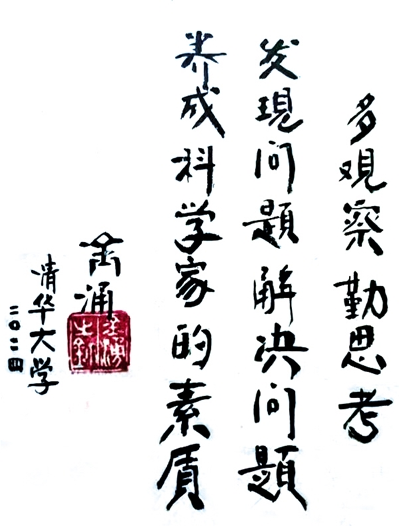 多观察勤思考
发現问题解决问题
养成科学家的素质
金涌
清华大学
二〇二四